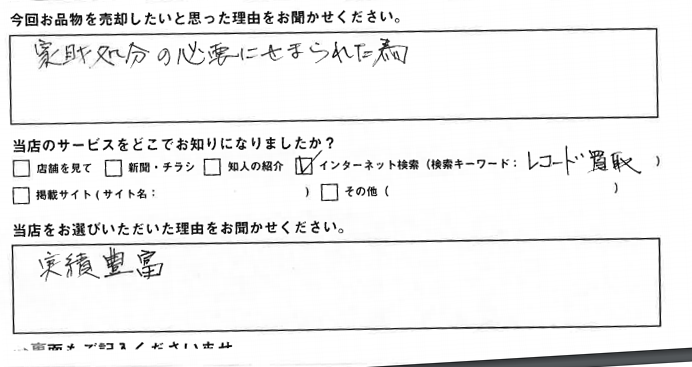 今回お品物を売却したいと思った理由をお聞かせください。
家財処分の必要にせまられた為
当店のサービスをどこでお知りになりましたか？
□ 店舗を見て □ 新聞・チラシ □ 知人の紹介 ☑ インターネット検索（検索キーワード：レコード買取）
□ 掲載サイト（サイト名：　）□ その他（　）
当店をお選びいただいた理由をお聞かせください。
実績豊富
裏面もご記入くださいませ